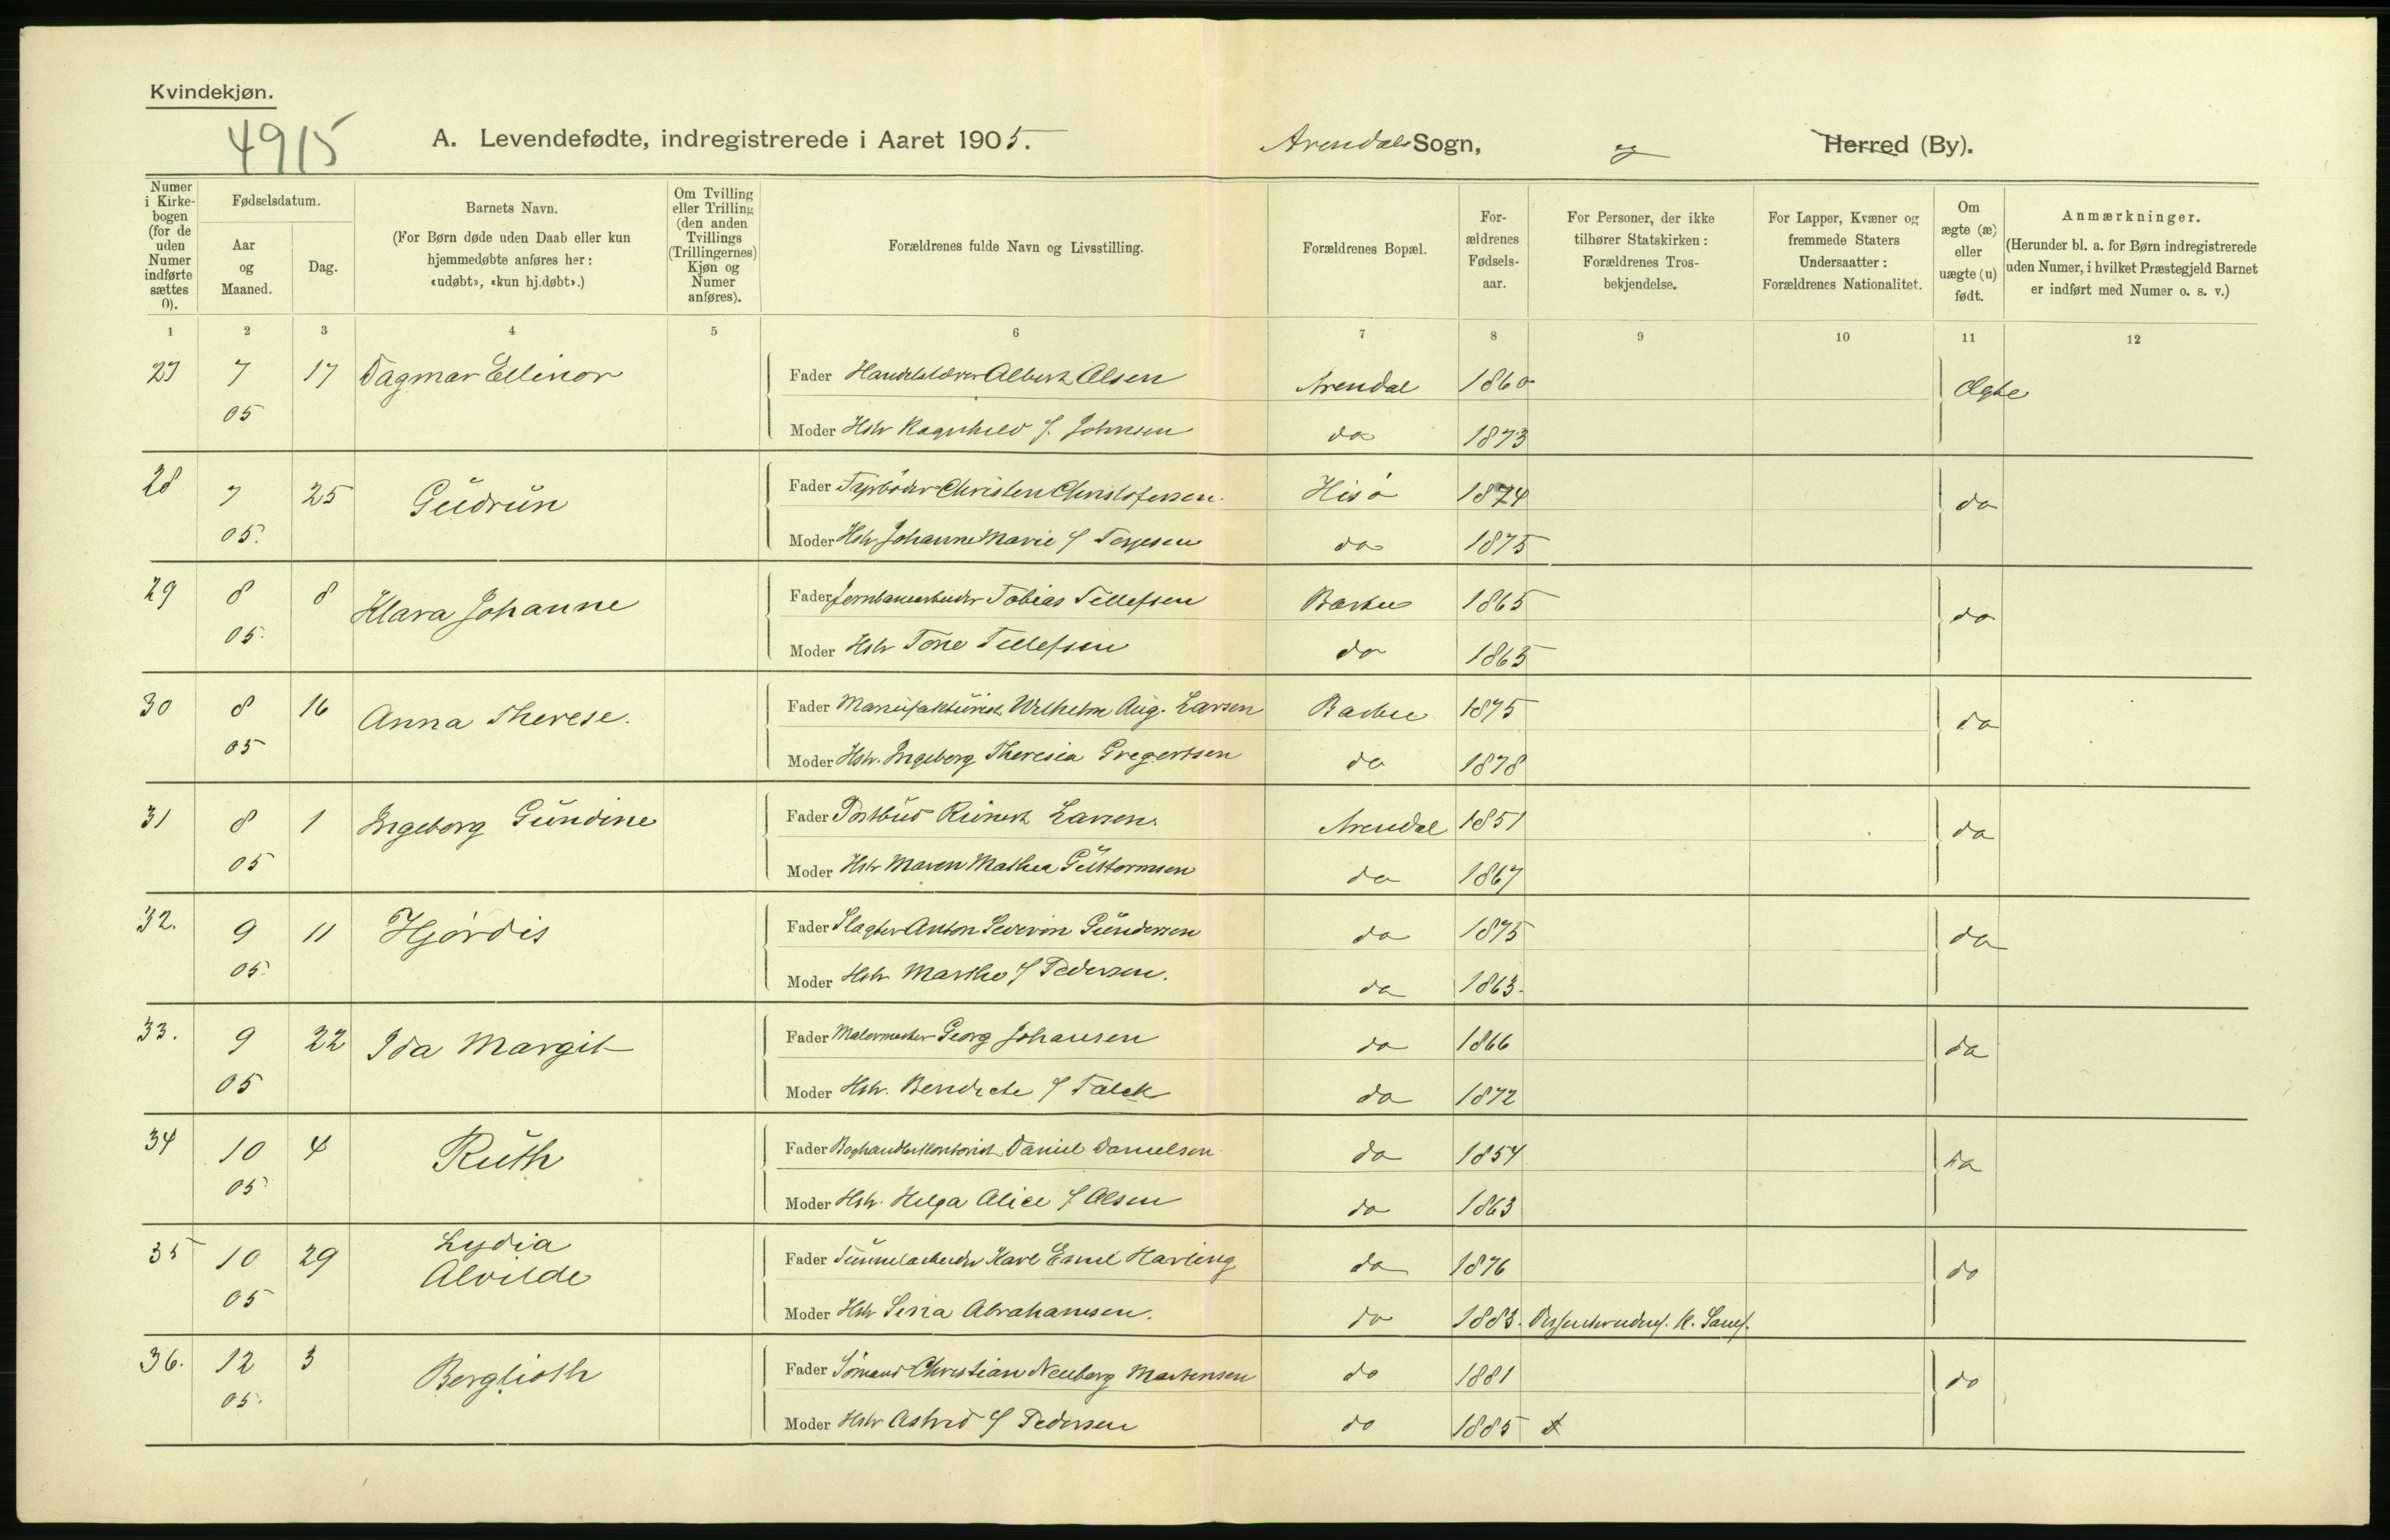 Kvindekjøn.
4915
A. Levendefødte, indregistrerede i Aaret 1905.
Arendals Sogn, og Herred (By).
Numer i Kirkebogen (for de uden Numer indførte sættes 0).
Fødselsdatum.
Aar og Maaned.
Dag.
Barnets Navn.
(For Børn døde uden Daab eller kun hjemmedøbte anføres her: «udøbt», «kun hj.døbt».)
Om Tvilling eller Trilling (den anden Tvillings (Trillingernes) Kjøn og Numer anføres).
Forældrenes fulde Navn og Livsstilling.
Forældrenes Bopæl.
Forældrenes Fødselsaar.
For Personer, der ikke tilhører Statskirken: Forældrenes Trosbekjendelse.
For Lapper, Kvæner og fremmede Staters Undersaatter: Forældrenes Nationalitet.
Om ægte (æ) eller uægte (u) født.
Anmærkninger.
(Herunder bl. a. for Børn indregistrerede uden Numer, i hvilket Præstegjeld Barnet er indført med Numer o. s. v.)
1 2 3 4 5 6 7 8 9 10 11 12
27 7 17 Dagmar Ellinor Fader Albert Olsen Arendal 1860 Ægte
05 Moder Hstr Ragnhild f. Johnsen do 1873
28 7 25 Gudrun Fader Fyrbøder Christen Christofersen. Hisø 1874 do
05. Moder Hstr Johanne Marie f Terjesen do 1875
29 8 8 Klara Johanne Fader Jernbanearbeider Tobias Tellefsen Barbu 1865 do
05. Moder Hstr Tone Tellefsen do 1865
30 8 16 Anna Therese. Fader Manufakturist Wilhelm Aug. Larsen Barbu 1875 do
05 Moder Hstr. Ingeborg Theresia Gregertsen do 1878
31 8 1 Ingeborg Gundine Fader Postbud Reinert Larsen. Arendal 1851 do
05 Moder Hstr Maren Mathea Guttormsen do 1867
32. 9 11 Hjørdis Fader Slagter Anton Severin Gundersen do 1875 do
05. Moder Hstr Marthe f Pedersen. do 1863.
33. 9 22 Ida Margit Fader Malermester Georg Johansen do 1866 do
05 Moder Hstr. Bendicte f Falck do 1872
34 10 4 Ruth Fader Daniel Danielsen do 1854 da
05 Moder Hstr. Helga Alice f. Olsen do 1863
35 10 29 Lydia
Alvilde Fader Tunnelarbeider Karl Emil Harling do 1876 do
05 Moder Hstr Sina Abrahamsen. do 1883.
36. 12 3 Berglioth Fader Sømand Christian Neuberg Martensen do 1881 do
05. Moder Hstr Astrid f Pedersen do 1885